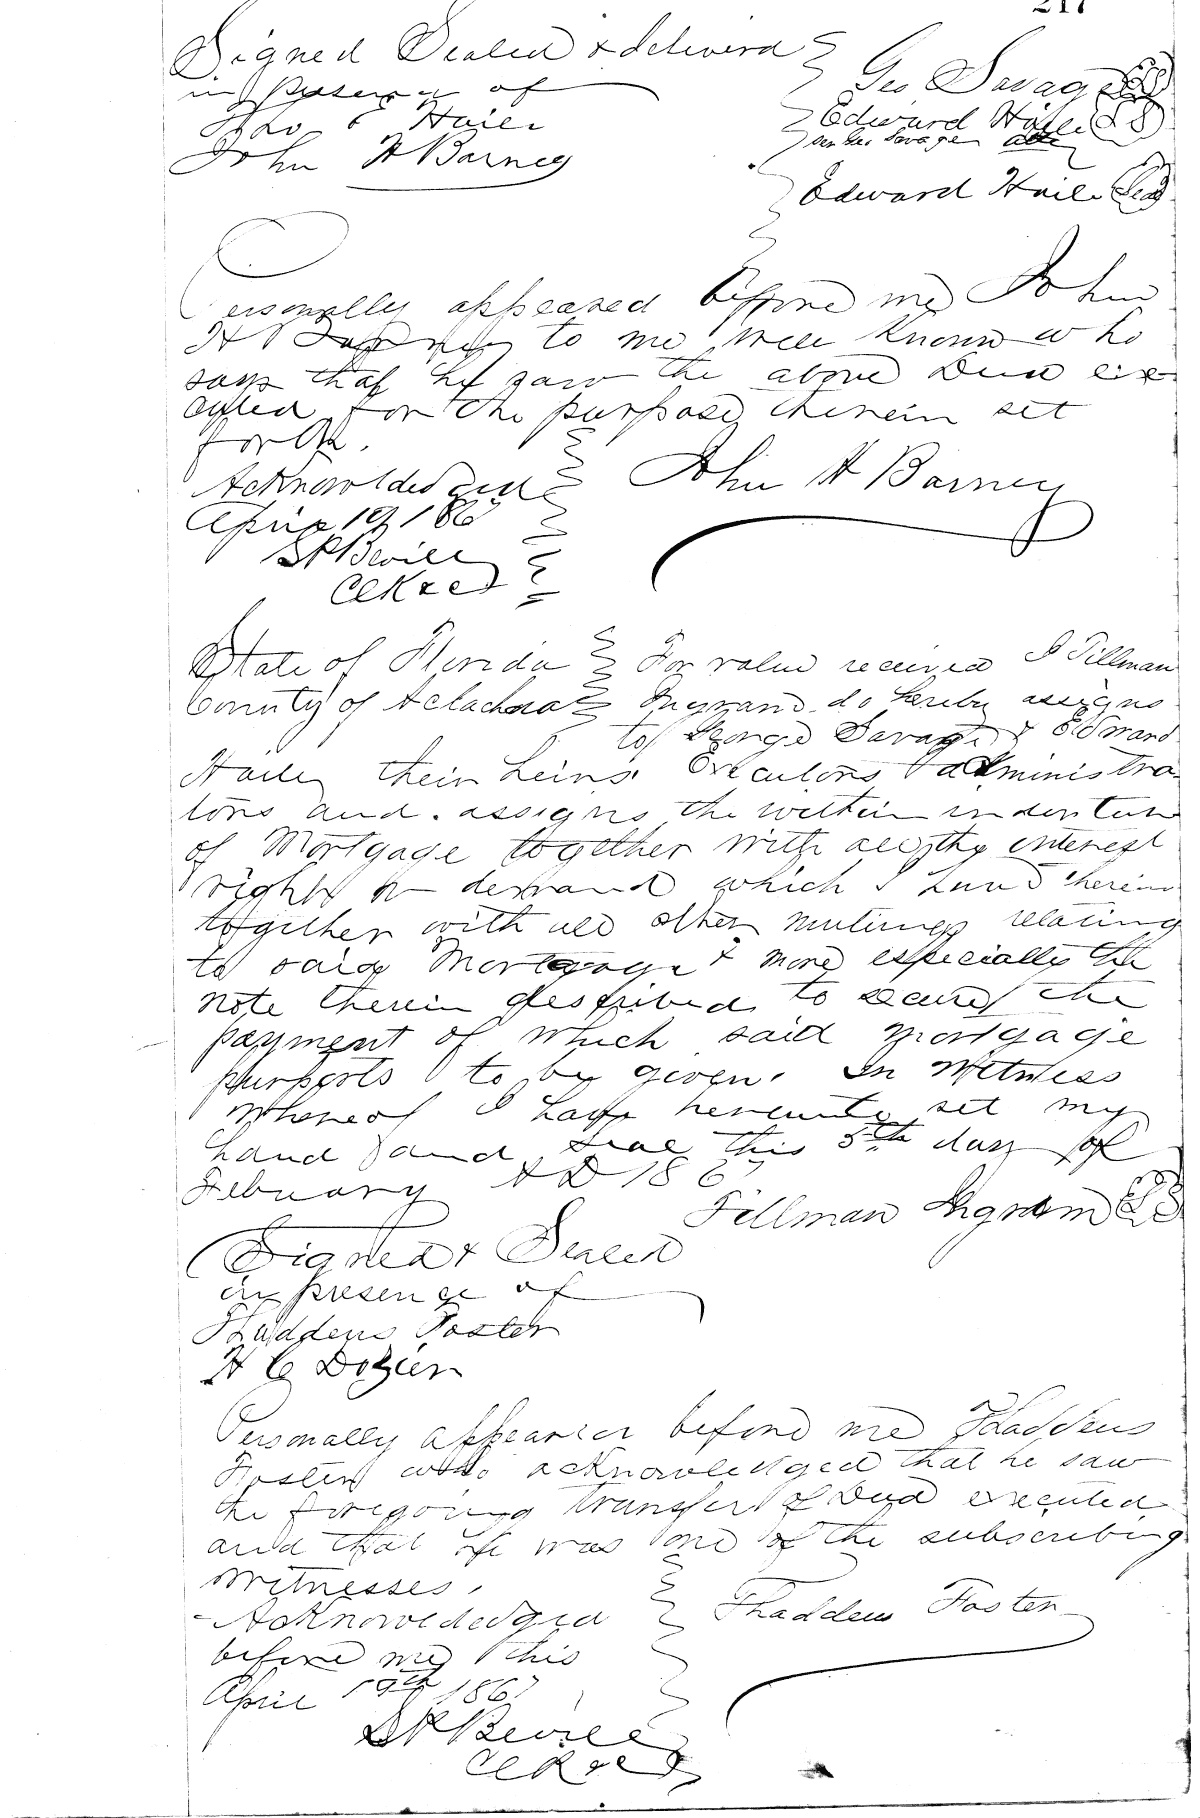 217
Signed Sealed & delivered
in presence of
Thos E Haile
John H Barney
Geo Savage LS
Edward Haile LS
per Geo Savage atty
Edward Haile Seal
Personally appeared before me John
H Barney to me well known who
says that he saw the above Deed exe
cuted for the purpose therein set
forth.
Acknowlded
April 19 186
John H Barney
S P Bevill
Clk
State of Florida
County of Aclachua
For value received I Tillman
Ingram do hereby assigns
to George Savage & Edward
Haile their heirs Executors & administra
tors and assigns the within indenture
of Mortgage together with all the interest
right or demand which I have therein
together with all other writings relating
to said Mortgage & more especially the
note therein described to secure the
payment of which said mortgage
purports to be given. In witness
whereof I have hereunto set my
hand and seal this 5th day of
February AD 186
Tillman Ingram LS
Signed & Sealed
in presence of
Thaddeus Foster
H C Dozier
Personally appearier before me Thaddeus
Foster who acknowledged that he saw
the foregoing transfer of Deed executed
and that he was one of the subscribing
Witnesses.
Acknowledged
before me this
April 19th 186
Thaddeus Foster
S P Bevill
Clk